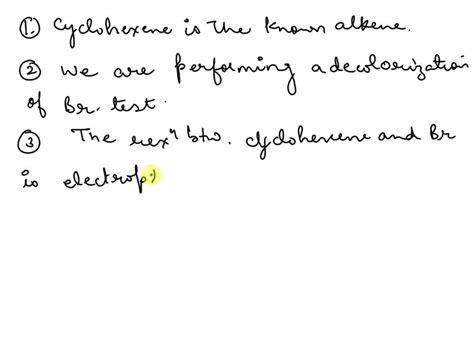 ① Cyclohexene is the known alkene.
② We are performing a decolorization
of Br. test.
③ The rexⁿ btw. cyclohexene and Br
is electrop